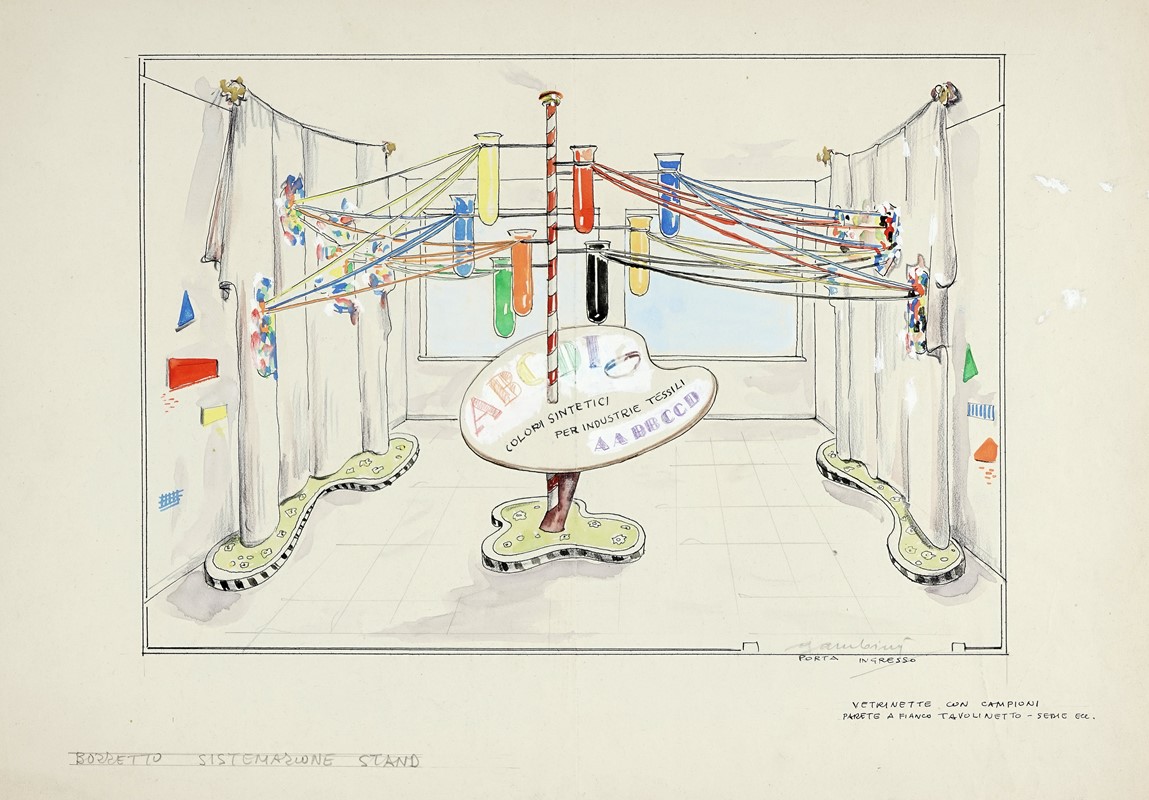 ABCDL
COLORI SINTETICI
PER INDUSTRIE TESSILI
AABBCCD
PORTA INGRESSO
VETRINETTE CON CAMPIONI
PARETE A FIANCO TAVOLINETTO - SEDIE ECC.
BOZZETTO SISTEMAZIONE STAND